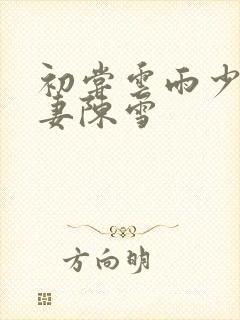 初尝雲雨少
妻陳雪
方向明